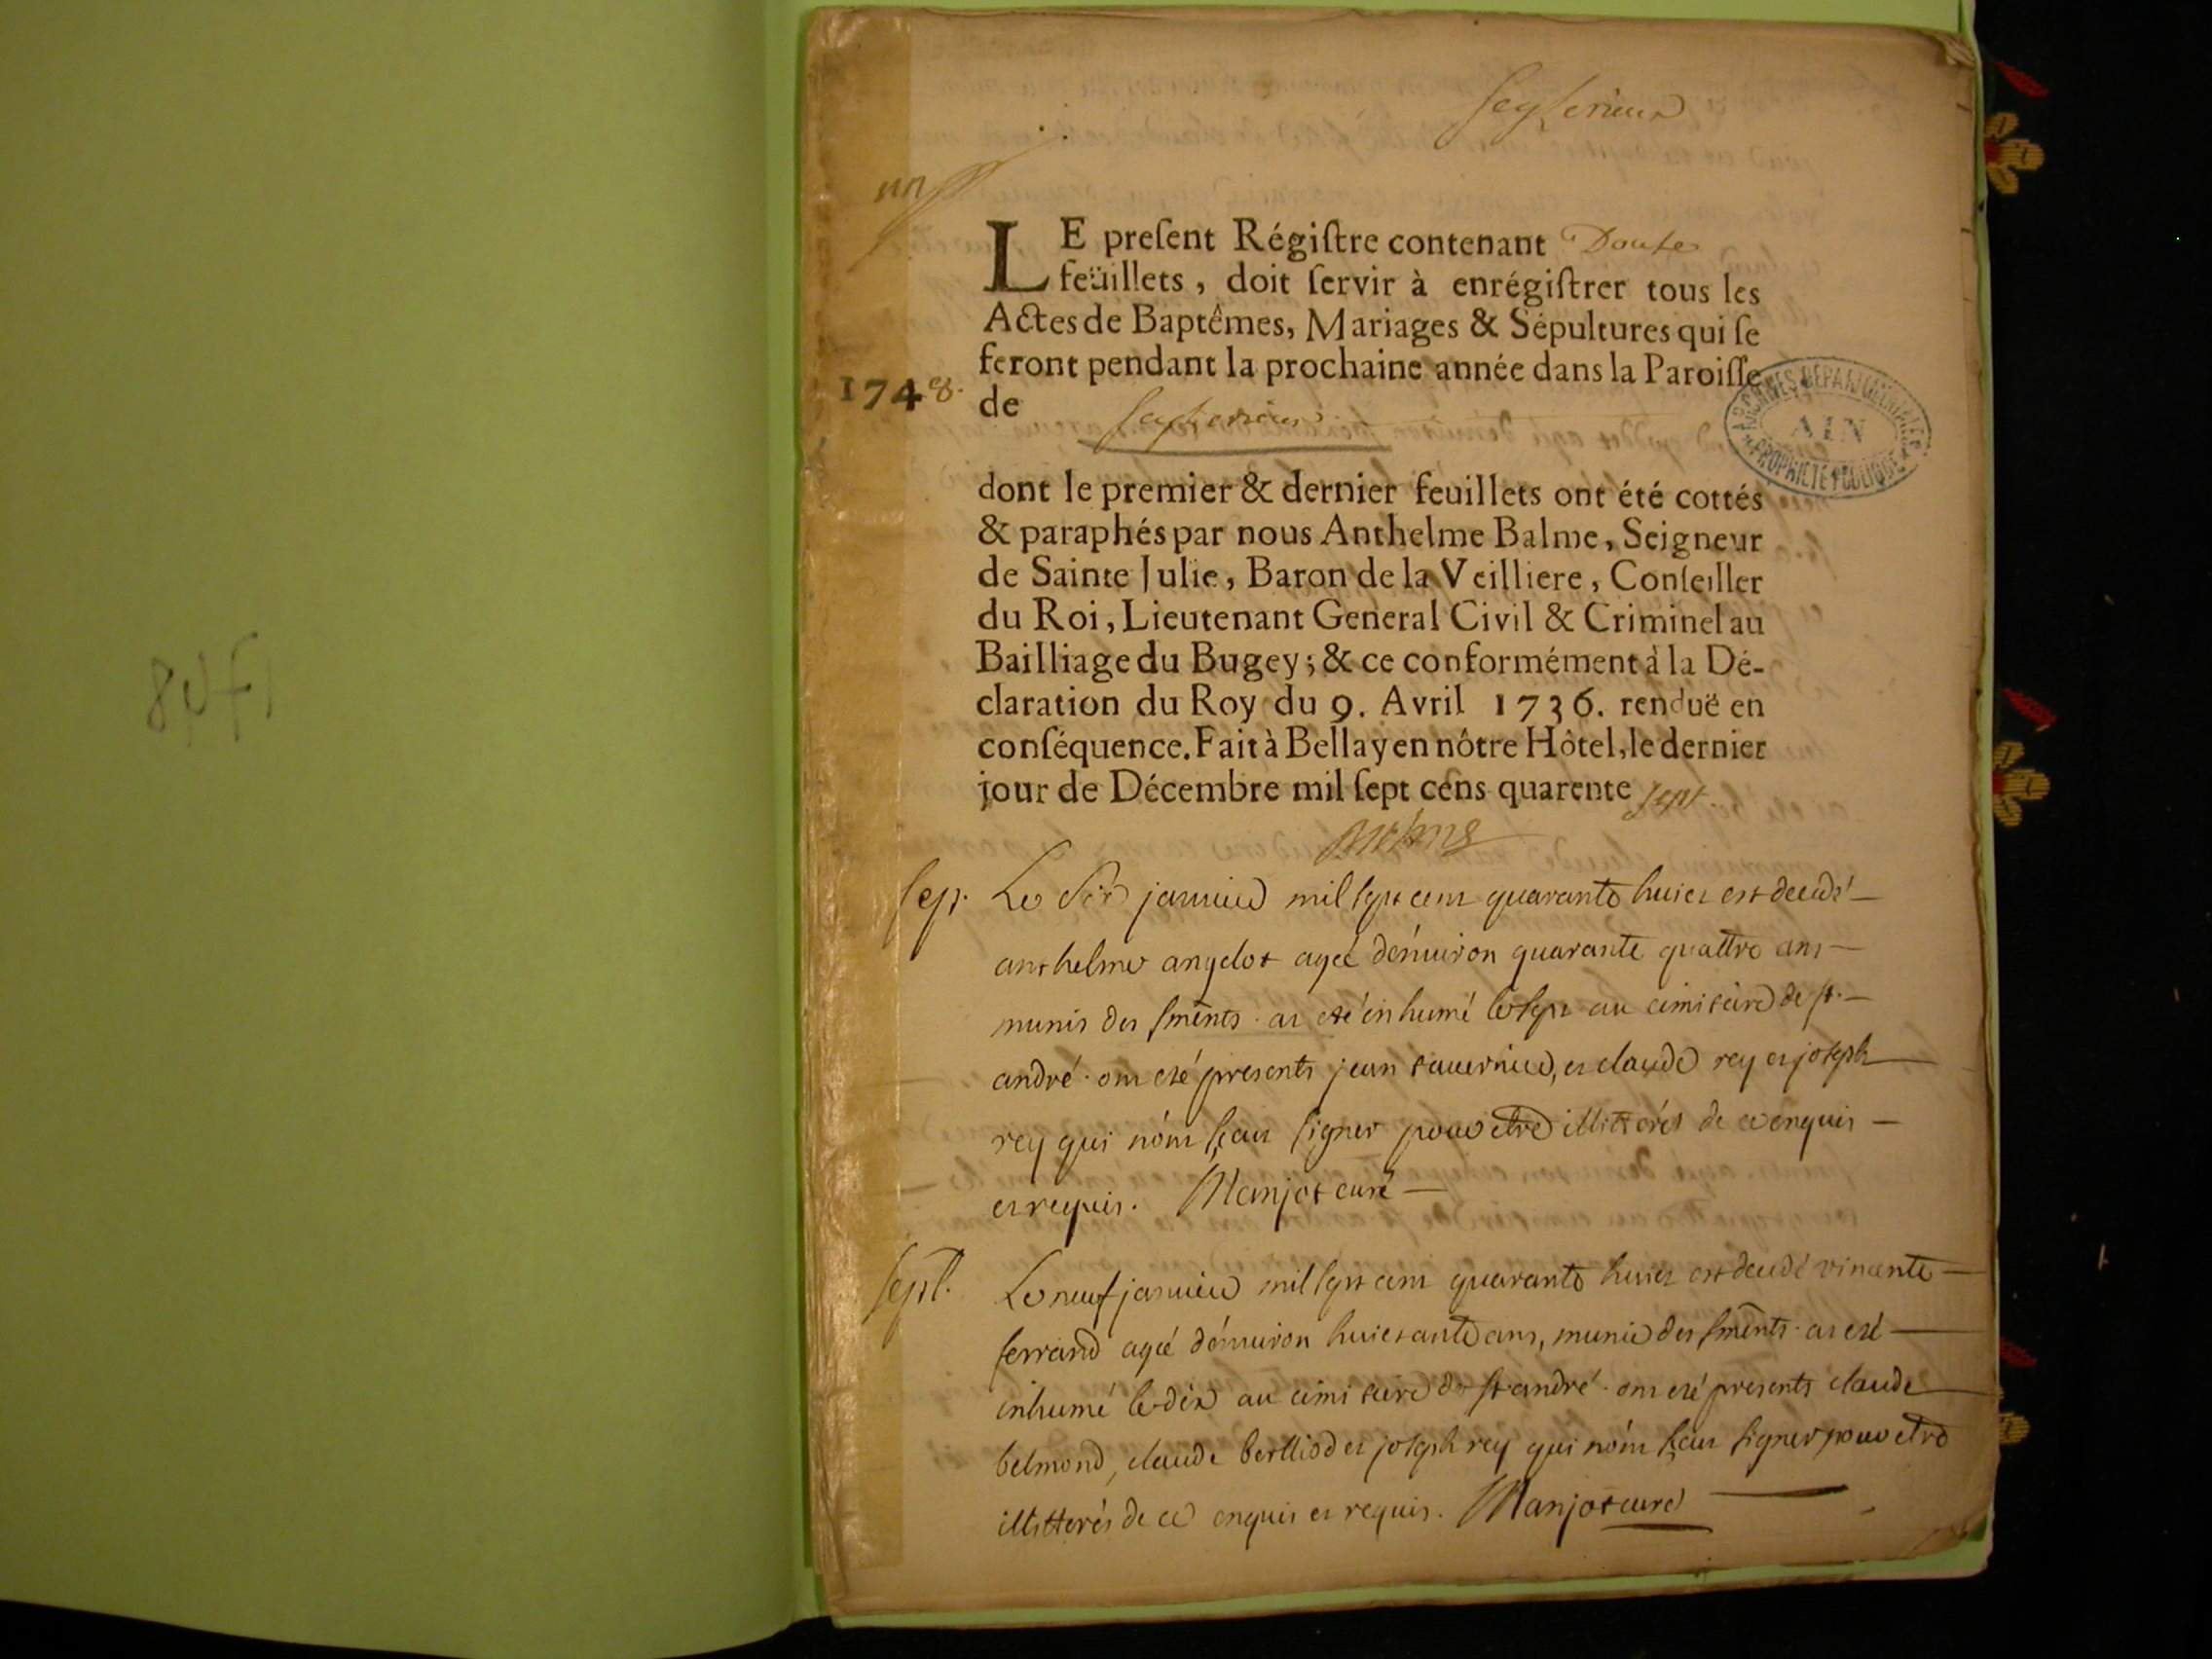 Seyserieux
un
LE preſent Régiſtre contenant Douſe
feüillets, doit ſervir à enrégiſtrer tous les
Actes de Baptêmes, Mariages & Sépultures qui ſe
feront pendant la prochaine année dans la Paroiſſe
1748.
de Seyserieux
ARCHIVES DEPARTEMENTALES
AIN
PROPRIETE PUBLIQUE
dont le premier & dernier feuillets ont été cottés
& paraphés par nous Anthelme Balme, Seigneur
de Sainte Julie, Baron de la Veilliere, Conſeiller
du Roi, Lieutenant General Civil & Criminel au
Bailliage du Bugey; & ce conformément à la Dé-
claration du Roy du 9. Avril 1736. renduë en
conſéquence. Fait à Bellay en nôtre Hôtel, le dernier
jour de Décembre mil ſept cens quarente sept.
Sep. Le Six janvier mil sept cent quarante huict est decedé
anthelme angelot ageé dénviron quarante quattre ans
munis des Smênts. at eté inhumé le sept au cimitaire de st.
andré. ont eté presents jean tavernier, et claude rey et joseph
rey qui nónt sçau signer pour etre illitterés de ce enquis
et requis. Manjot curé
Sepl. Le neuf janvier mil sept cent quarante huict est decedé vincente
ferrand ageé dénviron huictante ans, munie des Smênts. at eté
inhumé le dix au cimitaire de st andré. ont eté presents claude
belmond, claude berlliod et joseph rey qui nónt sçau signer pour etre
illitterés de ce enquis et requis. Manjot curé